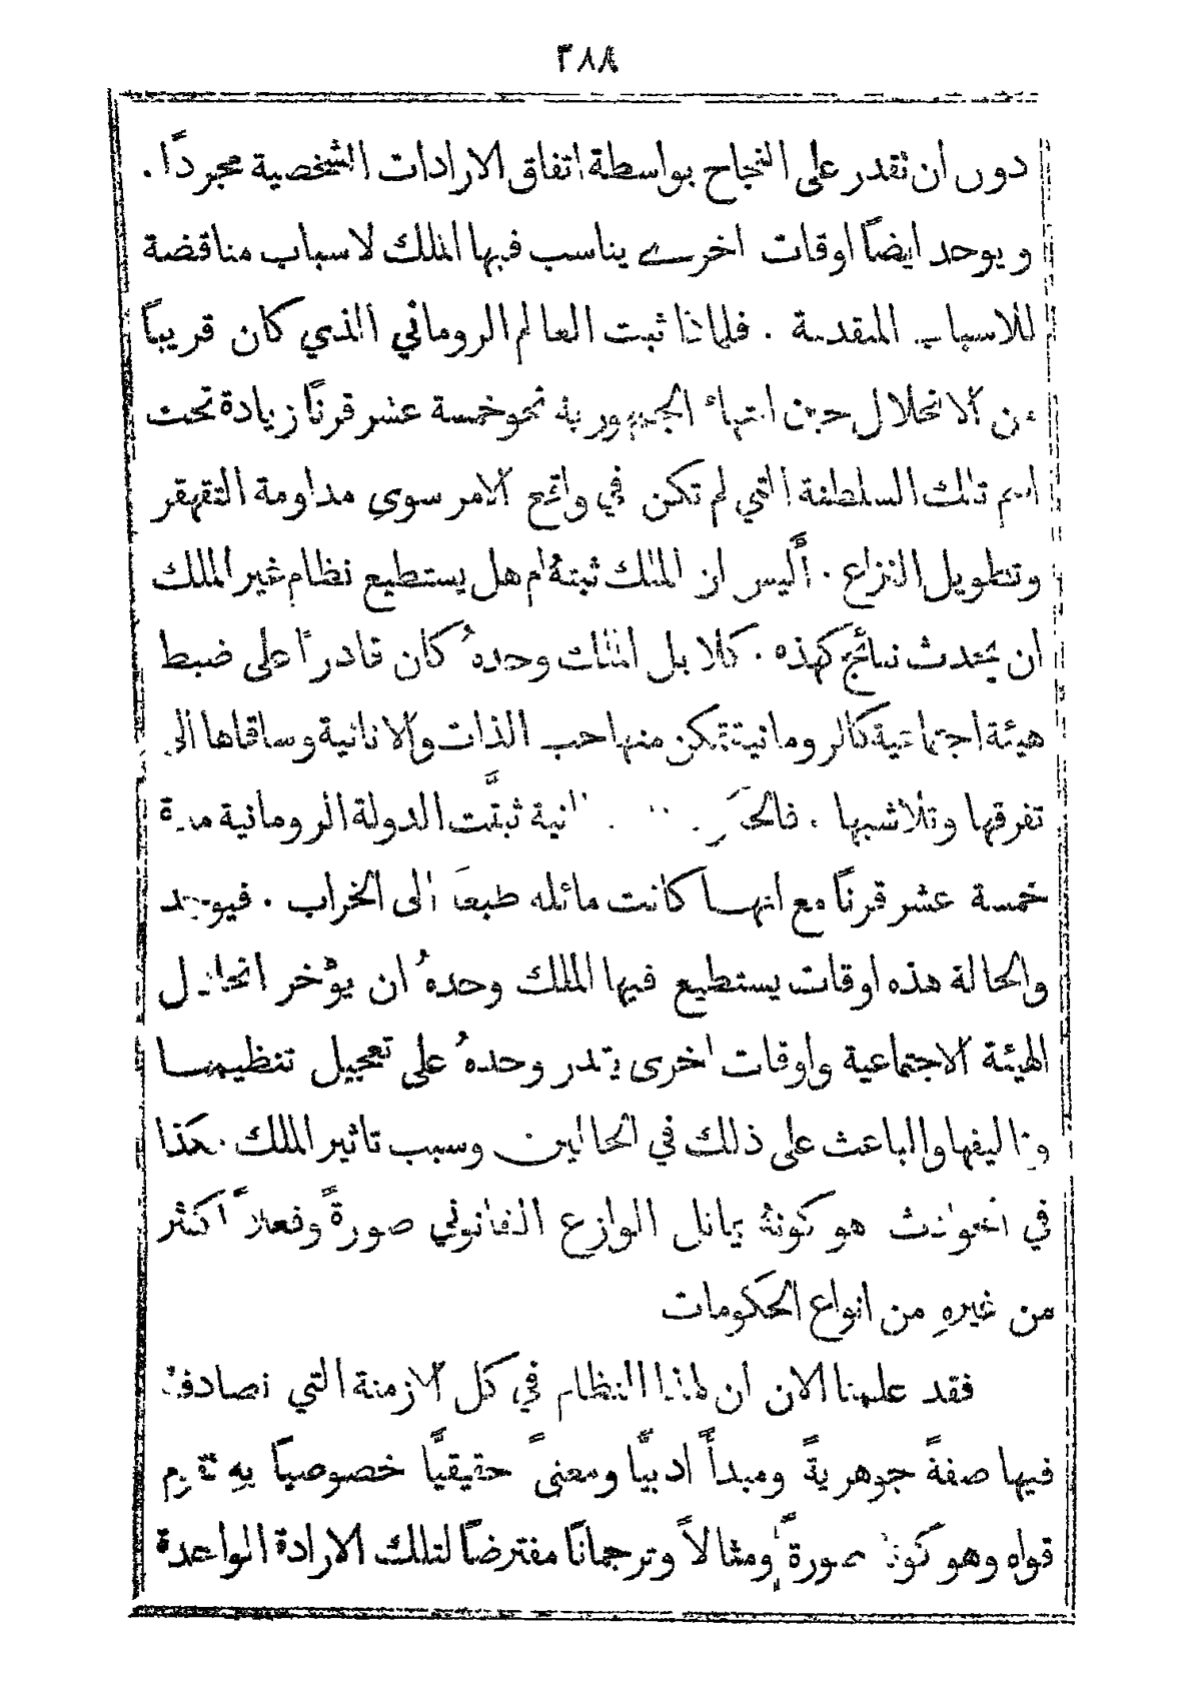 ٣٨٨
دون ان نقدر على النجاح بواسطة اتفاق الارادات الشخصية مجردًا .
ويوجد ايضًا اوقات اخرى يناسب فيها الملك لاسباب مناقضة
للاسباب المتقدمة . فلماذا ثبت العالم الروماني الذي كان قريبًا
من الانحلال حين انتهاء الجمهورية نحو خمسة عشر قرنًا زيادة تحت
اسم تلك السلطنة التي لم تكن في واقع الامر سوى مداومة التقهقر
وتطويل النزاع . أليس ان الملك ثبتهُ ام هل يستطيع نظام غير الملك
ان يحدث نتائج كهذه . كلا بل الملك وحدهُ كان قادرًا على ضبط
هيئة اجتماعية كالرومانية تمكن منها حب الذات والانانية وساقاها الى
تفرقها وتلاشيها . ثبتَّت الدولة الرومانية مدة
خمسة عشر قرنًا مع انهـا كانت مائله طبعًا الى الخراب . فيوجد
والحالة هذه اوقات يستطيع فيها الملك وحدهُ ان يؤخر انحلال
الهيئة الاجتماعية واوقات اخرى يقدر وحدهُ على تعجيل تنظيمهـا
وتاليفها والباعث على ذلك في الحالين وسبب تاثير الملك هكذا
في الحوادث هو كونهُ يماثل الوازع القانوني صورةً وفعلاً اكثر
من غيرهِ من انواع الحكومات
فقد علمنا الان ان لهذا النظام في كل الازمنة التي نصادفهُ
فيها صفةً جوهريةً ومبدأً ادبيًّا ومعنىً حقيقيًّا خصوصيًّا بهِ تقوم
قواه وهو كونهُ صورةً ومثالاً وترجمانًا مفترضًا لتلك الارادة الواحدة